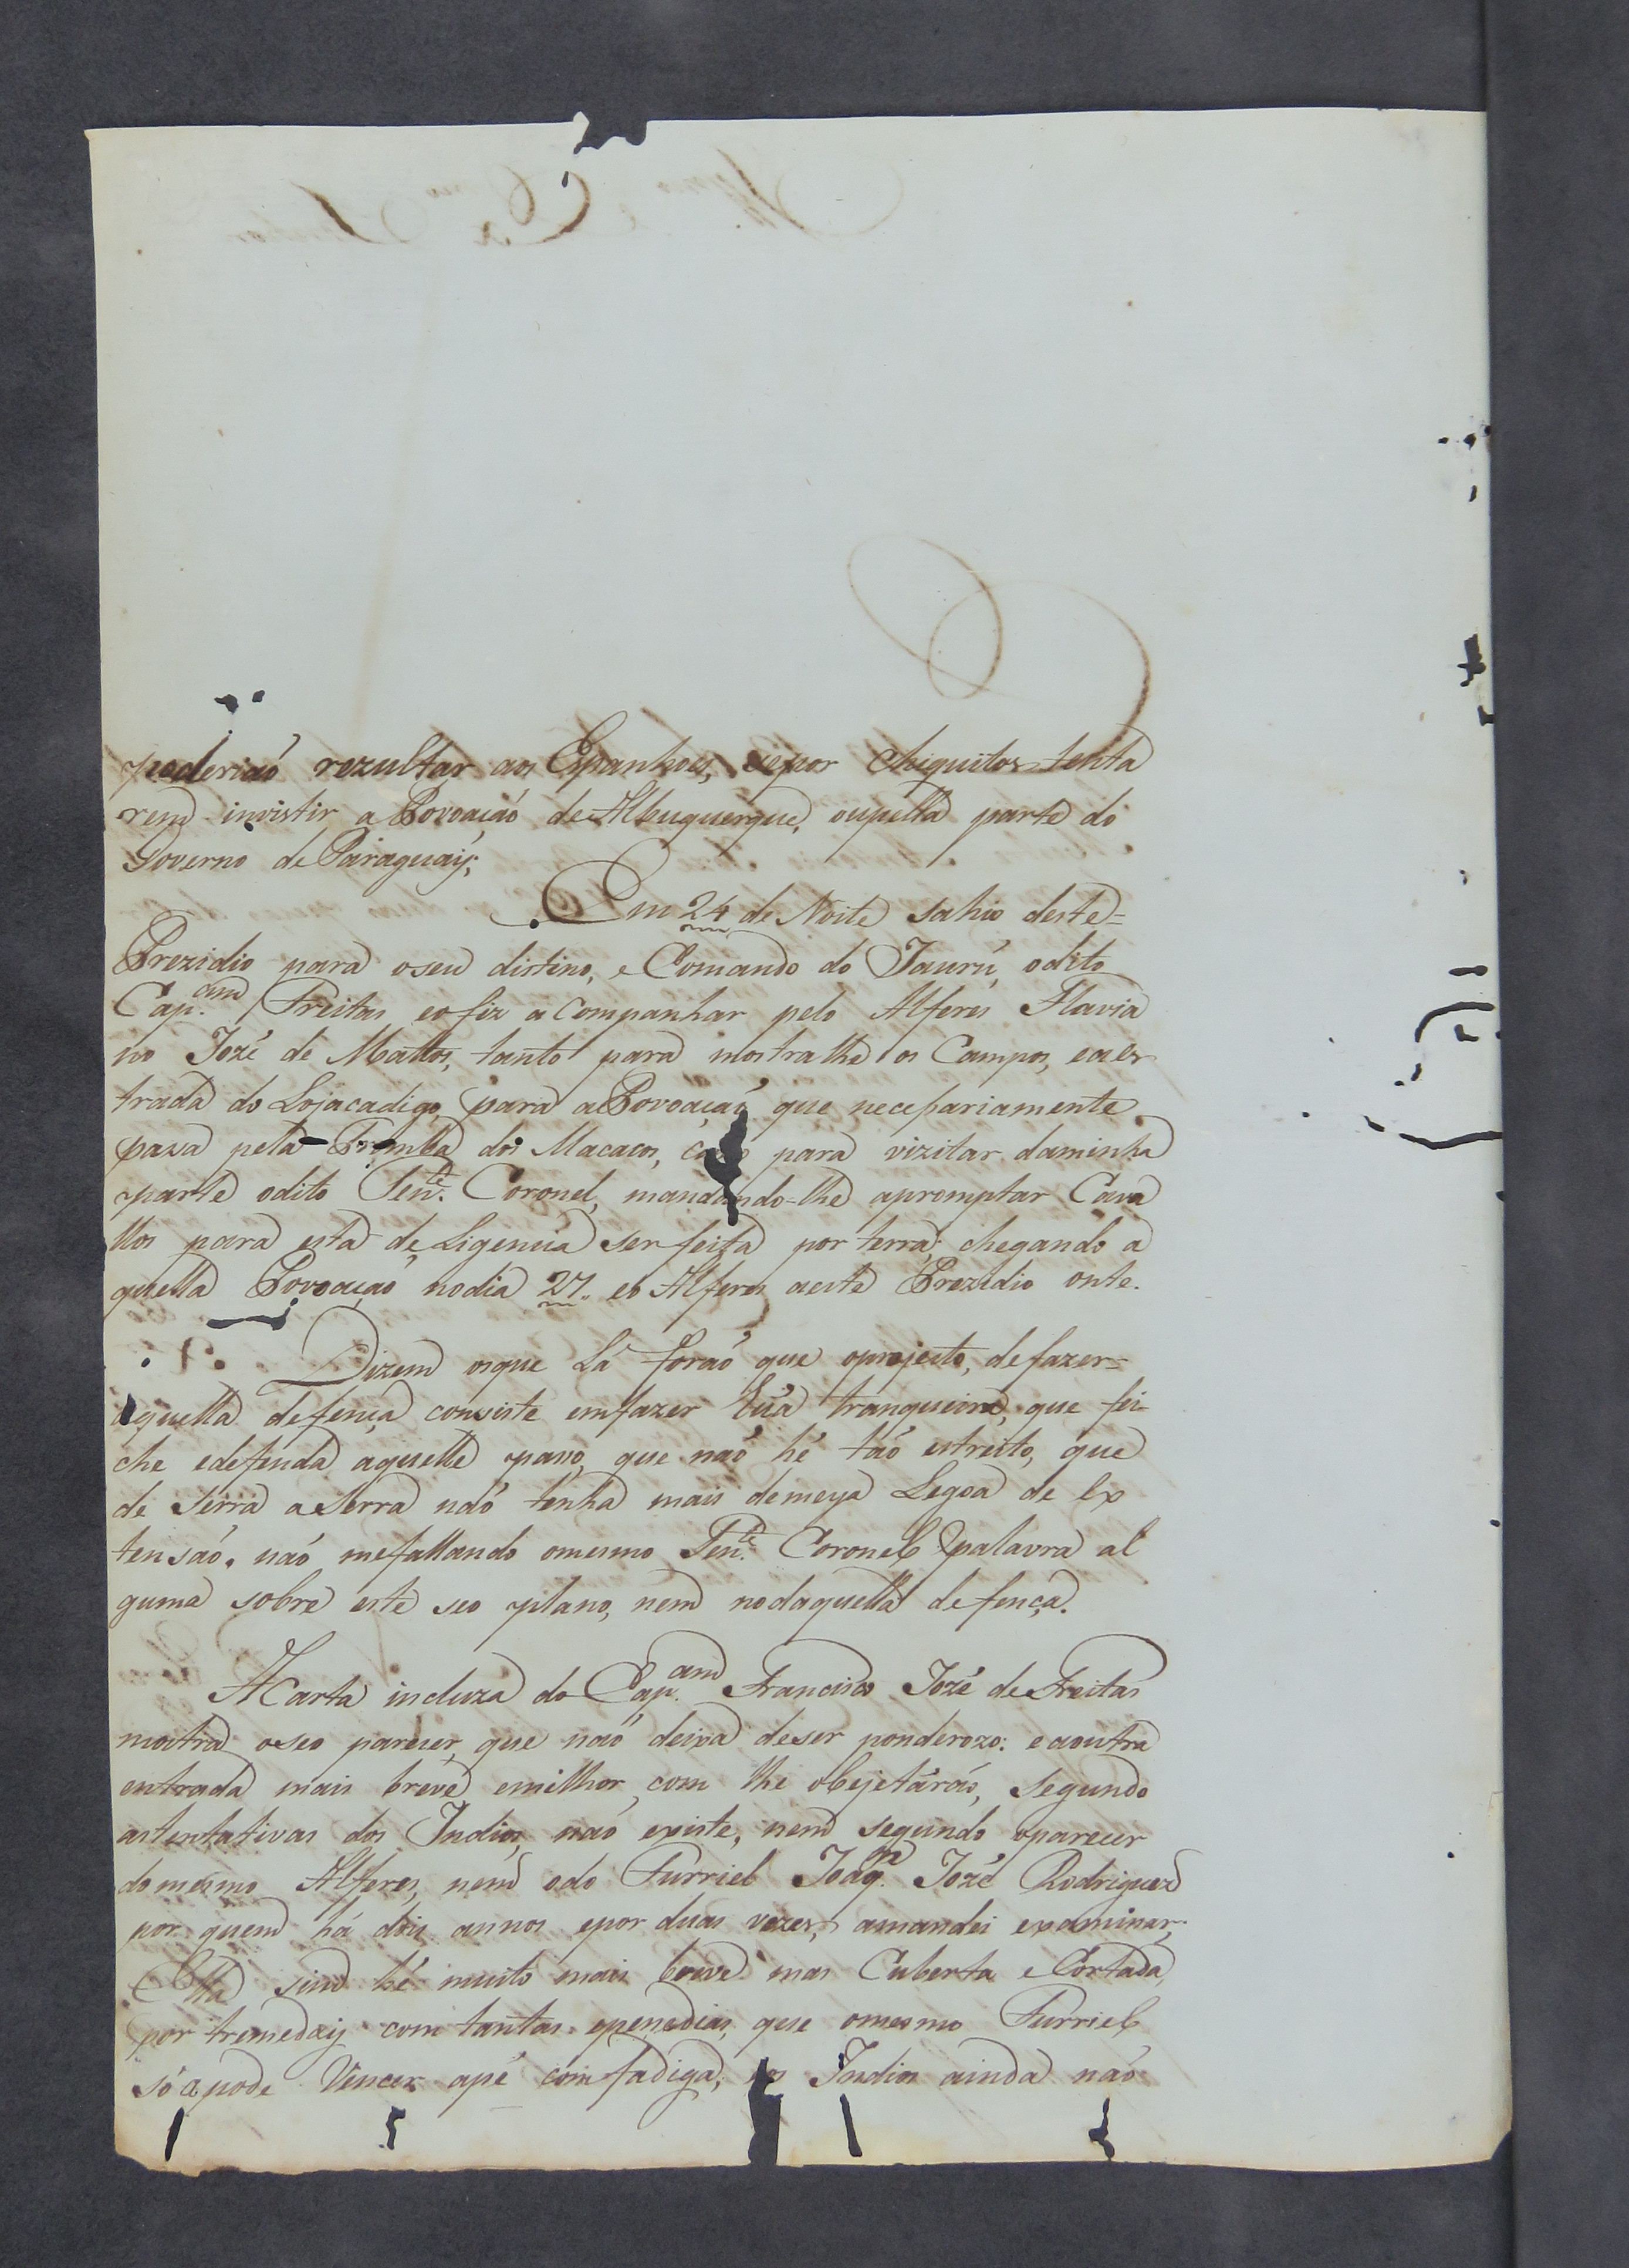 poderiaó rezultar aos Espanhoes, se por chiquitos tenta
rem invistir a Povoaçaó de Albuquerque, oupella parte do
Governo de Paraguaÿ;
Em 24 de Noite sahio deste=
Prezidio para oseu distino, e Comando do Jaurú, odito
Cap.am Freitas eofiz acompanhar pelo Alferes Flavia
no Jozé de Mattos, tanto para mostralhe os Campos, eaes
trada do Lojacadigo, para aPovoaçaó que necessariamente
passa pela Tromba dos Macacos, para vizitar daminha
parte odito Ten.te Coronel, mandando-lhe apromptar Cava
llos para esta deLigencia ser feita por terra, chegando a
quella Povoaçaó nodia 27. eo Alferes aeste Prezidio onte.
Dizem osque Lá foraó que oprojecto, defazer=
aquella defença consiste emfazer húa tranqueira, que fei
che edefenda aquelle passo, que naó hé taó estreito, que
de Serra aSerra naó tenha mais demeya Legoa de ex
tensaó, naó mefallando omesmo Ten.te Coronel palavra al
guma sobre este seo plano, nem nodaquella defença.
ACarta incluza do Cap.am Francisco Jozé deFreitas
mostra oseo parecer, que naó deixa deser ponderozo: eaoutra
entrada mais breve, emilhor, com lhe objetáraó, segundo
astentativas dos Indios, naó existe, nem segundo oparecer
domesmo Alferes, nem odo Furriel Joaq.m Jozé Rodrigues
por quem há dois annos epor duas vezes, amandei examinar;
Ella sim hé muito mais breve mas Cuberta e Cortada,
por tremedaiz com tantas epenedias, que omesmo Furriel
só apode Vencer apé com fadiga, eos Indios ainda naó